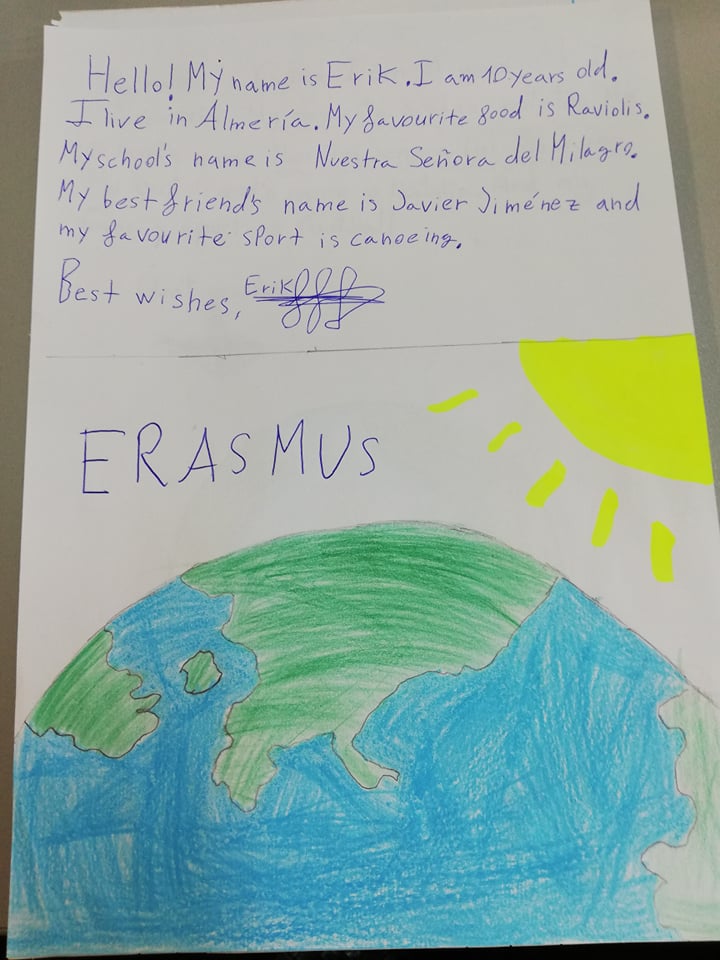 Hello! My name is Erik. I am 10 years old.
I live in Almería. My favourite food is Raviolis.
My school's name is Nuestra Señora del Milagro.
My best friend's name is Javier Jiménez and
my favourite sport is canoeing.
Best wishes, Erik
ERASMUS